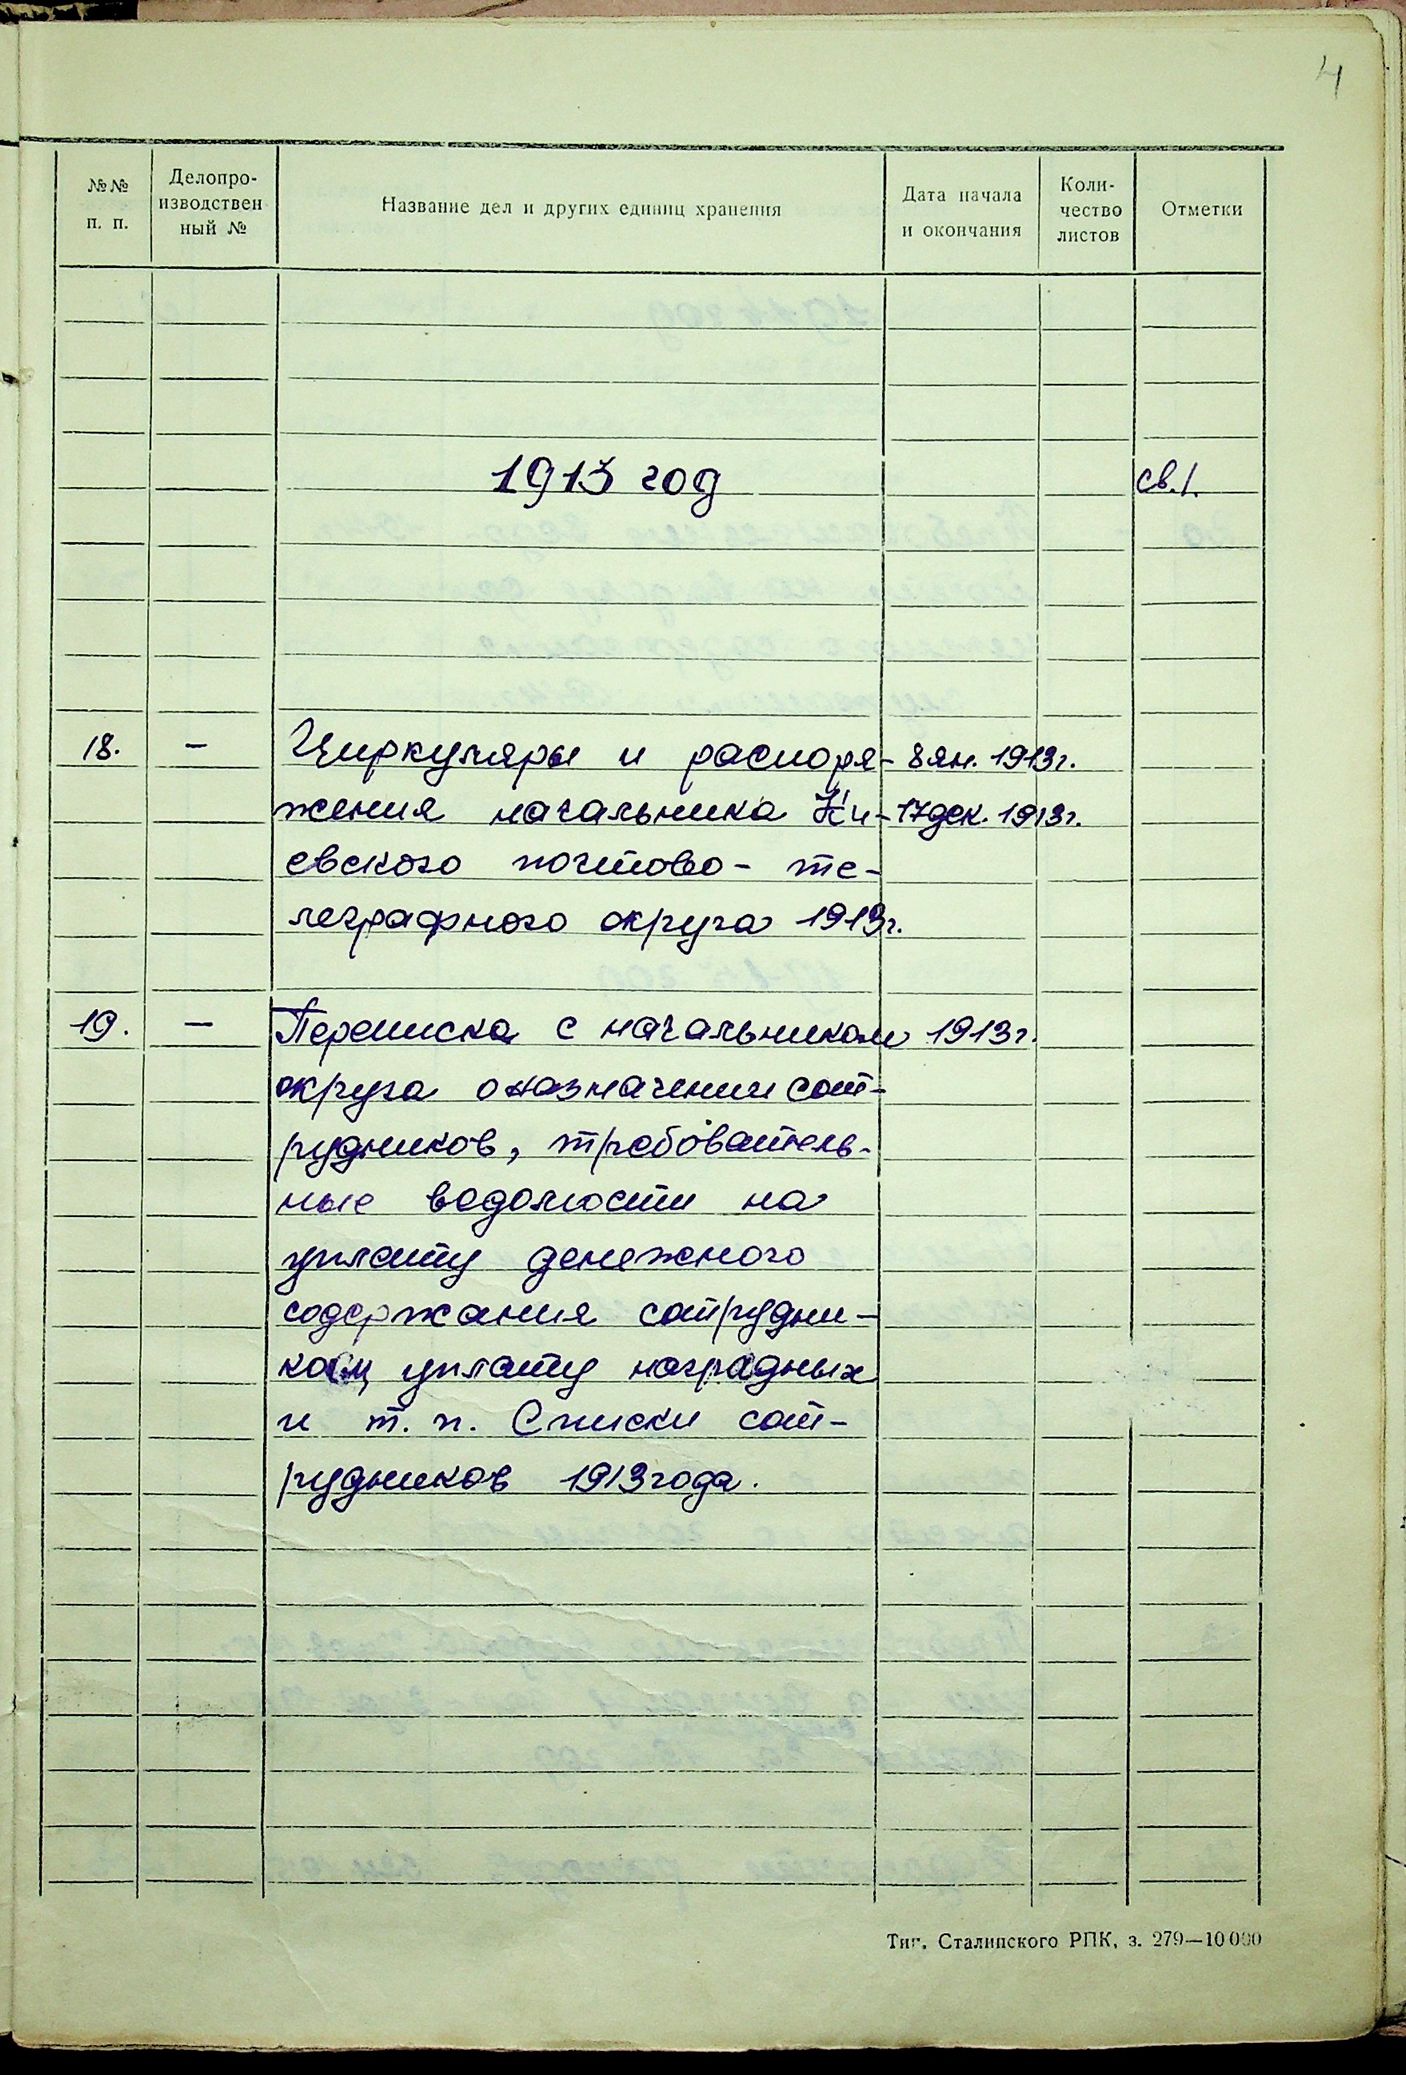 4
№№ п. п.
Делопро-
изводствен
ный №
Название дел и других единиц хранения
Дата начала
и окончания
Коли-
чество
листов
Отметки
1913 год св.1.
18. — Циркуляры и распоря- 8 ян. 1913 г.
жения начальника Ки- 17 дек. 1913 г.
евского почтово- те-
леграфного округа 1913 г.
19. — Переписка с начальником 1913 г.
округа о назначении сот-
рудников, требователь-
ные ведомости на
уплату денежного
содержания сотрудни-
кам, уплату наградных
и т. п. Списки сот-
рудников 1913 года.
Тип. Сталинского РПК, з. 279—10000